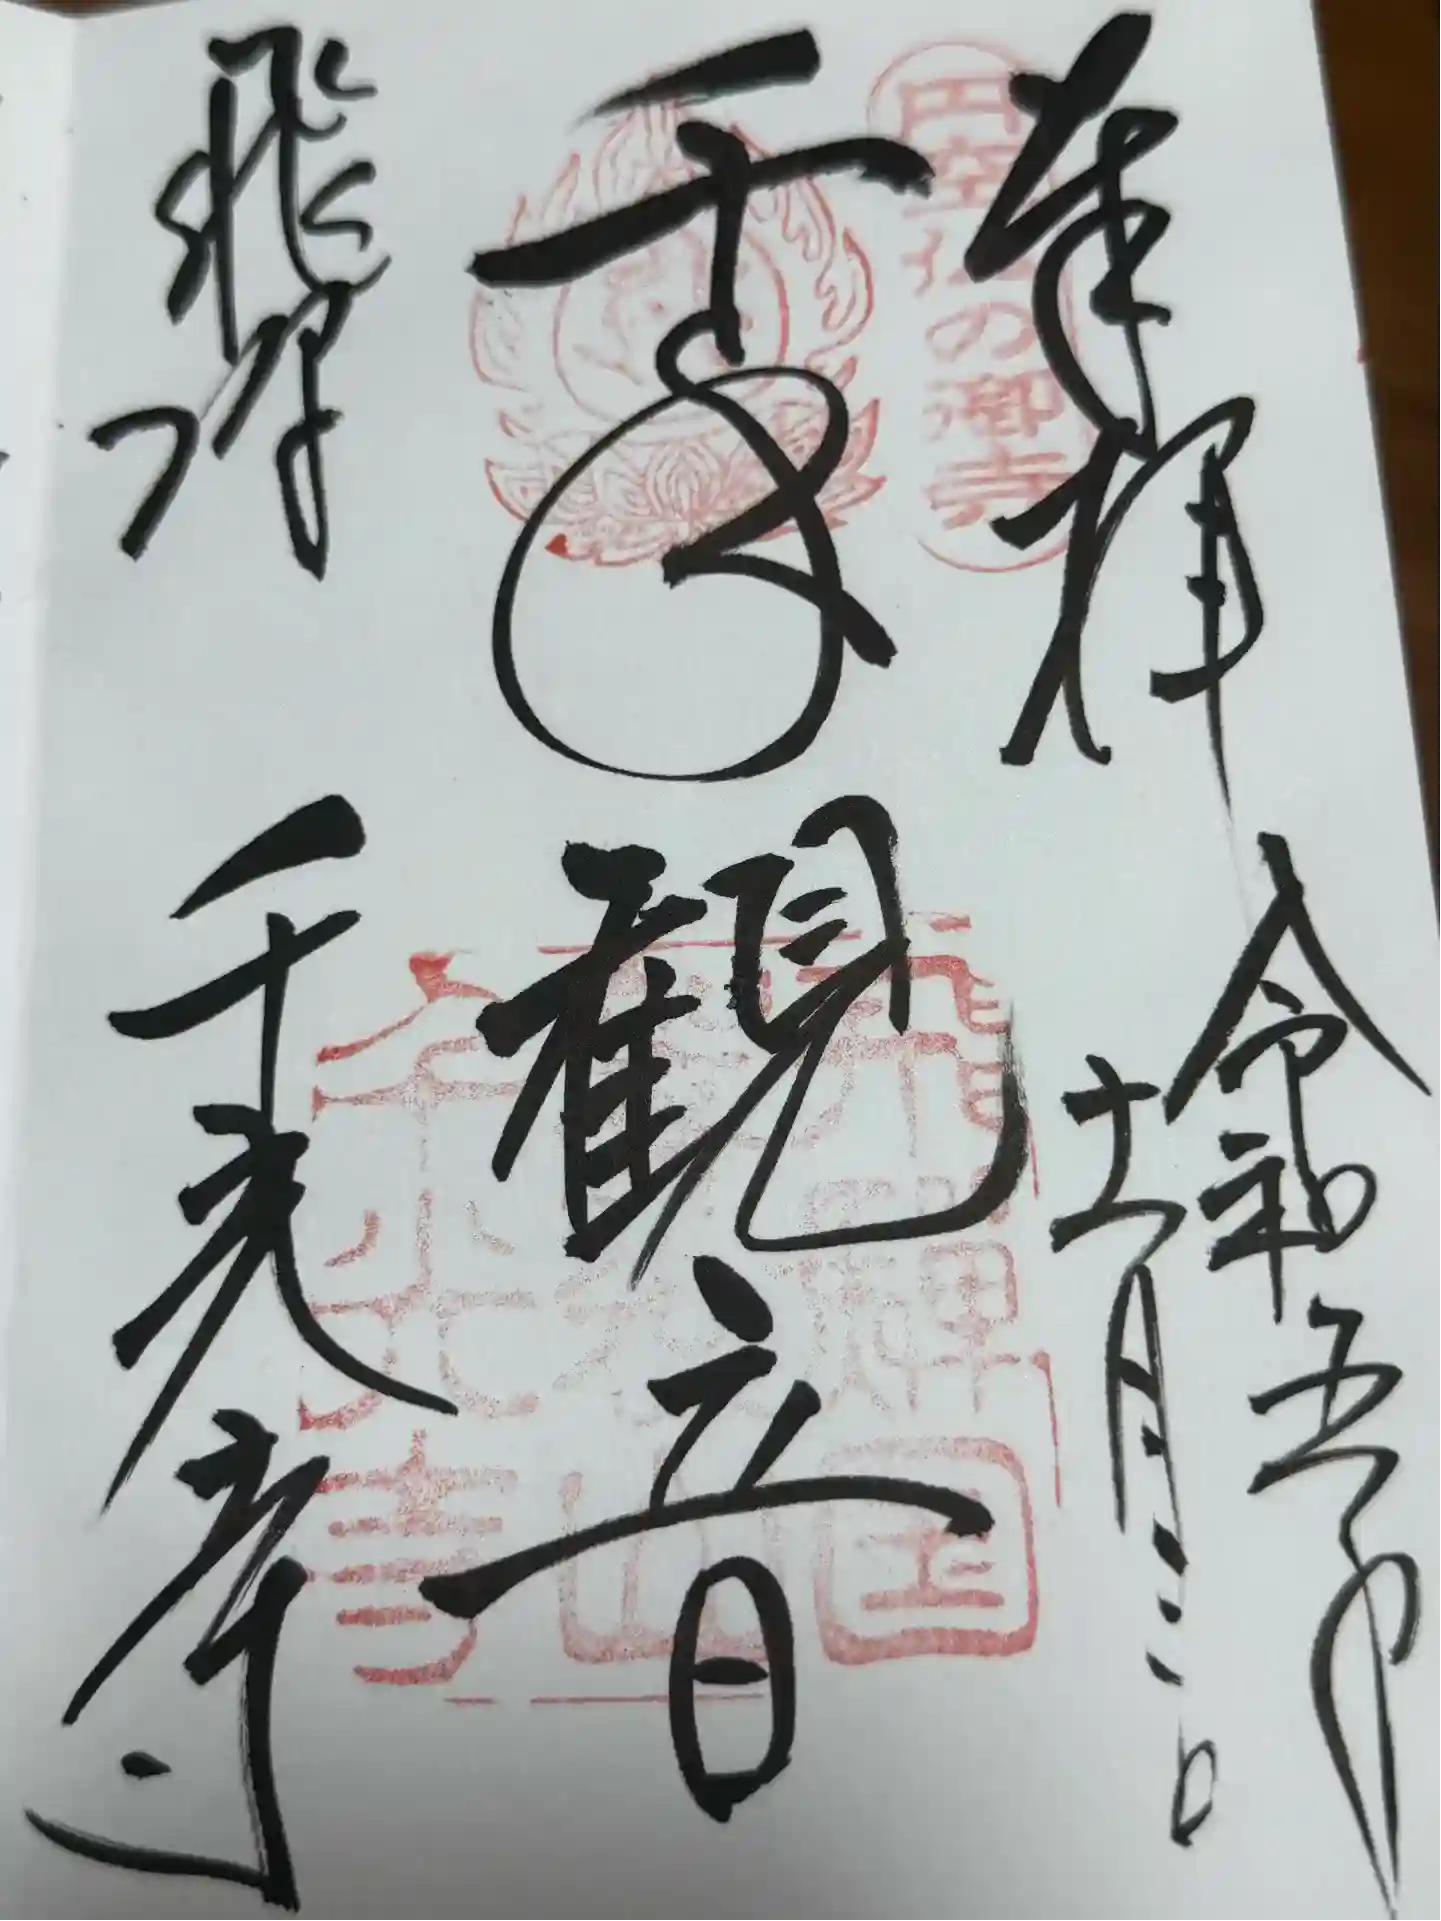 奉拝
令和五年
十一月三日
円空仏の御寺
千手観音
飛騨
千光寺